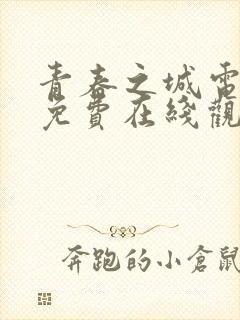 青春之城電
免費在綫觀
奔跑的小倉鼠